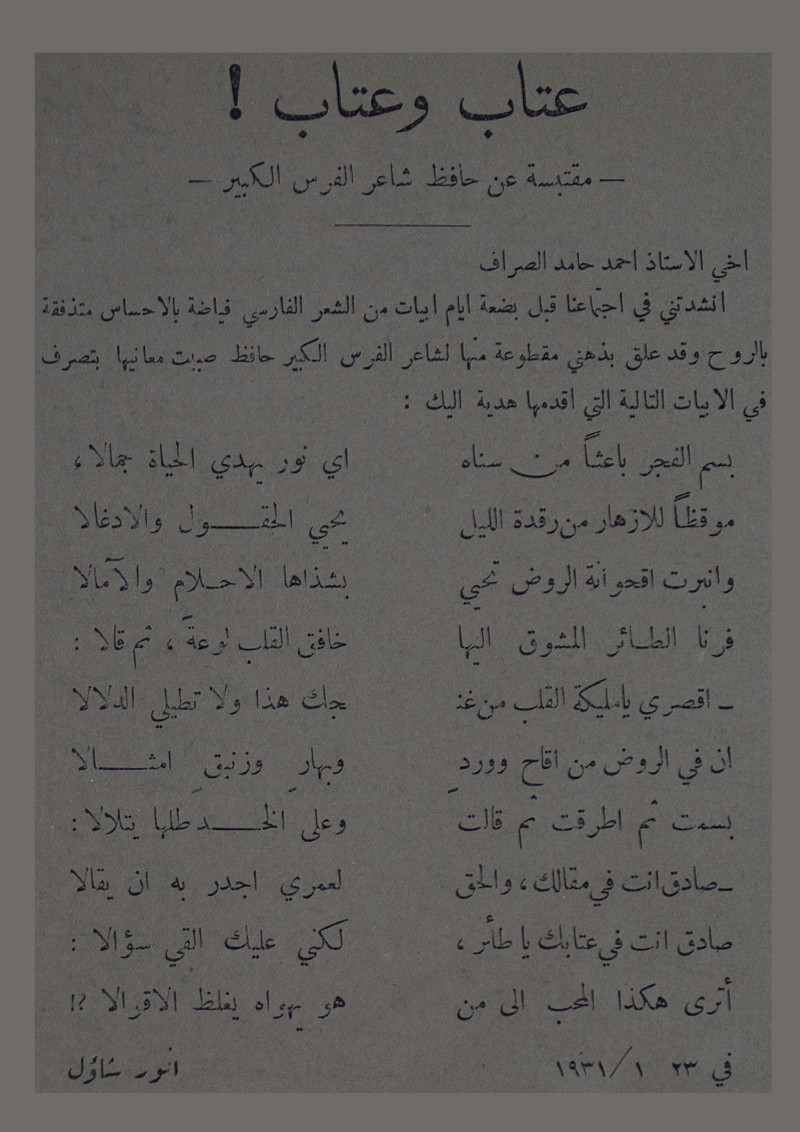 عتاب وعتاب !
— مقتبسة عن حافظ شاعر الفرس الكبير —
اخي الاستاذ احمد حامد الصراف
انشدتني في اجتماعنا قبل بضعة ايام ابيات من الشعر الفارسي فياضة بالاحساس متدفقة
بالروح وقد علق بذهني مقطوعة منها لشاعر الفرس الكبير حافظ صببت معانيها بتصرف
في الابيات التالية التي اقدمها هدية اليك :
بسم الفجر باعثاً من سناه اي نور يهدي الحياة جمالا ،
موقظاً للازهار من رقدة الليل يحيي الحقول والادغالا
وانبرت اقحوانة الروض تحيي بشذاها الاحلام والآمالا
فرنا الطائر المشوق اليها خافق القلب لوعةً ، ثم قالا :
ـ اقصري يامليكة القلب من غنـ ـجك هذا ولا تطيلي الدلالا
ان في الروض من اقاح ووردٍ وبهارٍ وزنبقٍ امثالا
بسمت ثم اطرقت ثم قالت وعلى الخد طلها يتلالا :
ـ صادق انت في مقالك ، والحق لعمري اجدر به ان يقالا
صادق انت في عتابك يا طائر ، لكني عليك القي سؤالا :
أترى هكذا المحب الى من هو يهواه يغلظ الاقوالا ؟!
في ٢٣ ١/ ١٩٣١ انور شاؤل